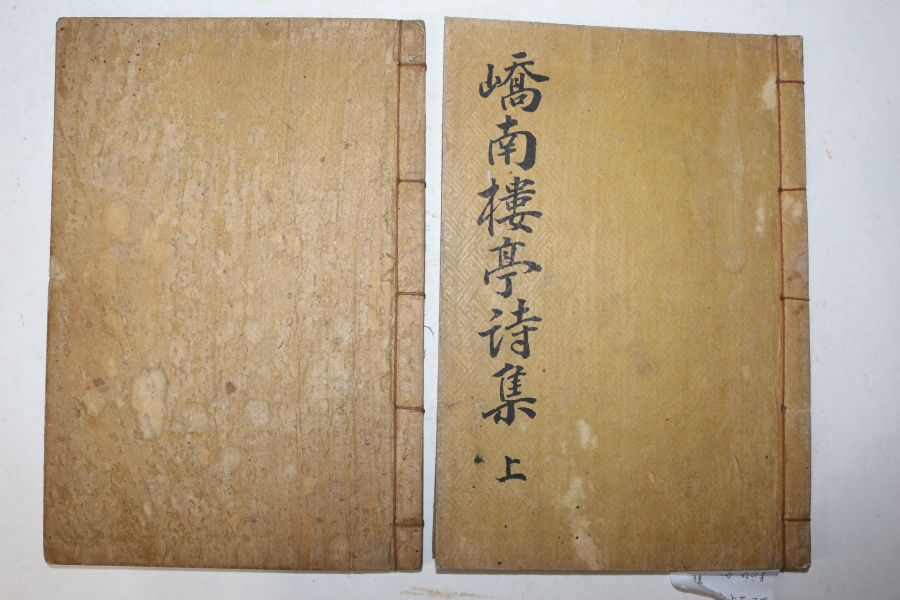 嶠南樓亭詩集 上